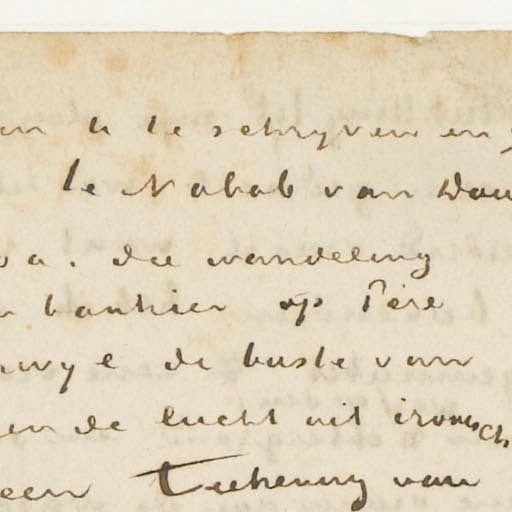 u te schryven en
le Nabab van Dau
a. die wandeling
bankier op Père
wyl de buste van
en de lucht uit ironisch
een Teekening van